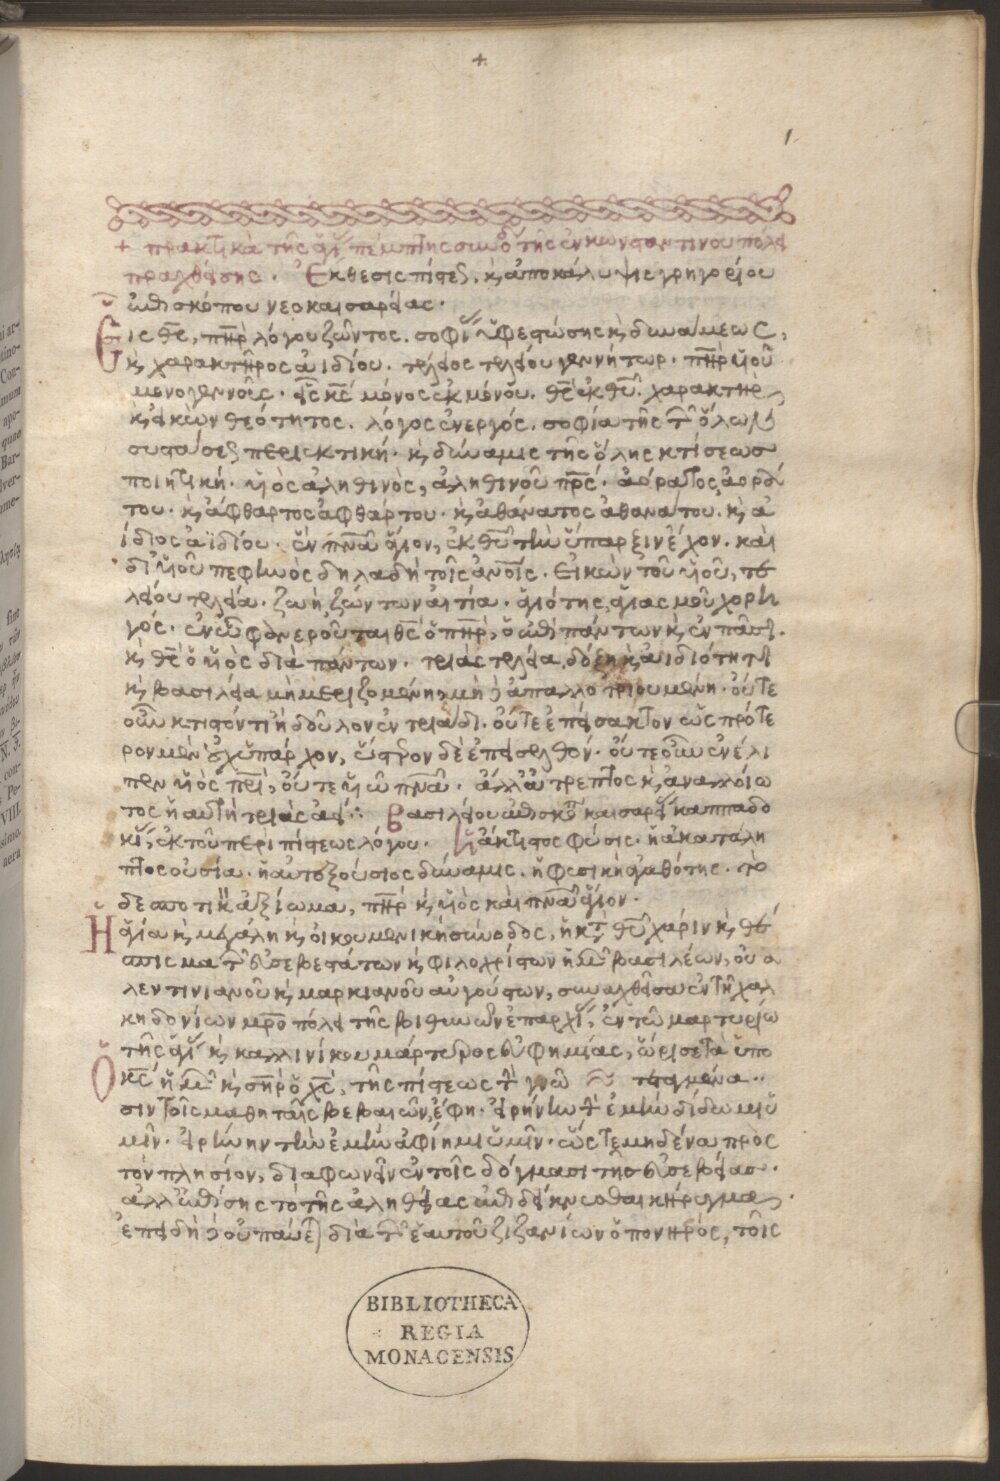 +
1
+ πρακτικὰ τῆς ἁγί πέμπτης συνόδ τῆς ἐν κωνσταντινουπόλει
πραχθείσης. Ἔκθεσις πίστεως, κ ἀποκάλυψις γρηγορίου
ἐπισκόπου νεοκαισαρείας.
Εἷς θς, πηρ λόγου ζῶντος. σοφίας ὑφεστώσης κ δυνάμεως,
κ χαρακτῆρος ἀϊδίου. τέλειος τελείου γεννήτωρ. πηρ υἱοῦ
μονογενοῦς. εἷς κς μόνος ἐκ μόνου. θς ἐκ θυ. χαρακτὴρ
κ εἰκὼν θεότητος. λόγος ἐνεργός. σοφία τῆς τ ὅλων
συστάσεως περιεκτική. κ δύναμις τῆς ὅλης κτίσεωσ
ποιητική. υἱὸς ἀληθινὸς, ἀληθινοῦ πρς. ἀόρατος, ἀορά
του. κ ἄφθαρτος ἀφθάρτου. κ ἀθάνατος ἀθανάτου. κ ἀ
ίδιος ἀϊδίου. ἓν πνα ἅγιον, ἐκ θυ τὴν ὕπαρξιν ἔχον. καὶ
δι' υἱοῦ πεφηνὸς δηλαδὴ τοῖς ανοις. εἰκὼν τοῦ υἱοῦ, τε
λείου τελεία. ζωὴ ζώντων αἰτία. ἁγιότης, ἁγιασμοῦ χορη
γός. ἐν ᾧ φανεροῦται θς ὁ πηρ, ὁ ἐπὶ πάντων κ ἐν πᾶσι.
κ θς ὁ υἱὸς διὰ πάντων. τριὰς τελεία, δόξῃ κ ἀϊδιότητι
κ βασιλεία μὴ μεριζομένη, μὴ δ ἀπαλλοτριουμένη. οὔτε
οὖν κτιστόν τι ἢ δοῦλον ἐν τριάδι. οὔτε ἐπείσακτον ὡς πρότε
ρον μὲν οὐχ ὑπάρχον, ὕστερον δὲ ἐπεισελθόν. οὔτε οὖν ἐνέλι
πεν υἱὸς πρι, οὔτε υἱῶ πνα. ἀλλ' ἄτρεπτος κ ἀναλλοίω
τος ἡ αὐτὴ τριὰς ἀεί. Βασιλείου ἐπισκό καισαρεί καππαδο
κί, ἐκ τοῦ περὶ πίστεως λόγου. Ἡ ἄκτιστος φύσις. ἡ ἀκατάλη
πτος οὐσία. ἡ αὐτεξούσιος δύναμις. ἡ φυσικὴ ἀγαθότης. τὸ
δεσποτικὸν ἀξίωμα, πηρ κ υἱὸς καὶ πνα ἅγιον.
Ἡ ἁγία κ μεγάλη κ οἰκουμενικὴ σύνοδος, ἡ κατ θυ χάριν κ θέ
σπισμα τ εὐσεβεστάτων κ φιλοχρίστων ἡμ βασιλέων, οὐα
λεντινιανοῦ κ μαρκιανοῦ αὐγούστων, συναχθεῖσα ἐν τῇ χαλ
κηδονίων μρο πόλει τῆς βιθυνῶν ἐπαρχί, ἐν τῶ μαρτυρίω
τῆς ἁγί κ καλλινίκου μάρτυρος εὐφημίας, ὥρισε τὰ ὑπο
τεταγμένα..
Ὁ κς ἡμ κ σηρ ὁ χς, τῆς πίστεως τ γνῶ
σιν τοῖς μαθηταῖς βεβαιῶν, ἔφη. εἰρήνην τ ἐμὴν δίδωμι ὑ
μῖν. εἰρήνην τὴν ἐμὴν ἀφίημι ὑμῖν. ὥστε μηδένα πρὸς
τὸν πλησίον, διαφωνεῖν ἐν τοῖς δόγμασι τῆς εὐσεβείασ.
ἀλλ' ἐπίσης τὸ τῆς ἀληθείας ἐπιδείκνυσθαι κήρυγμα.
ἐπειδὴ δ οὐ παύετ διὰ τ ἑαυτοῦ ζιζανίων ὁ πονηρὸς, τοῖς
BIBLIOTHECA
REGIA
MONACENSIS